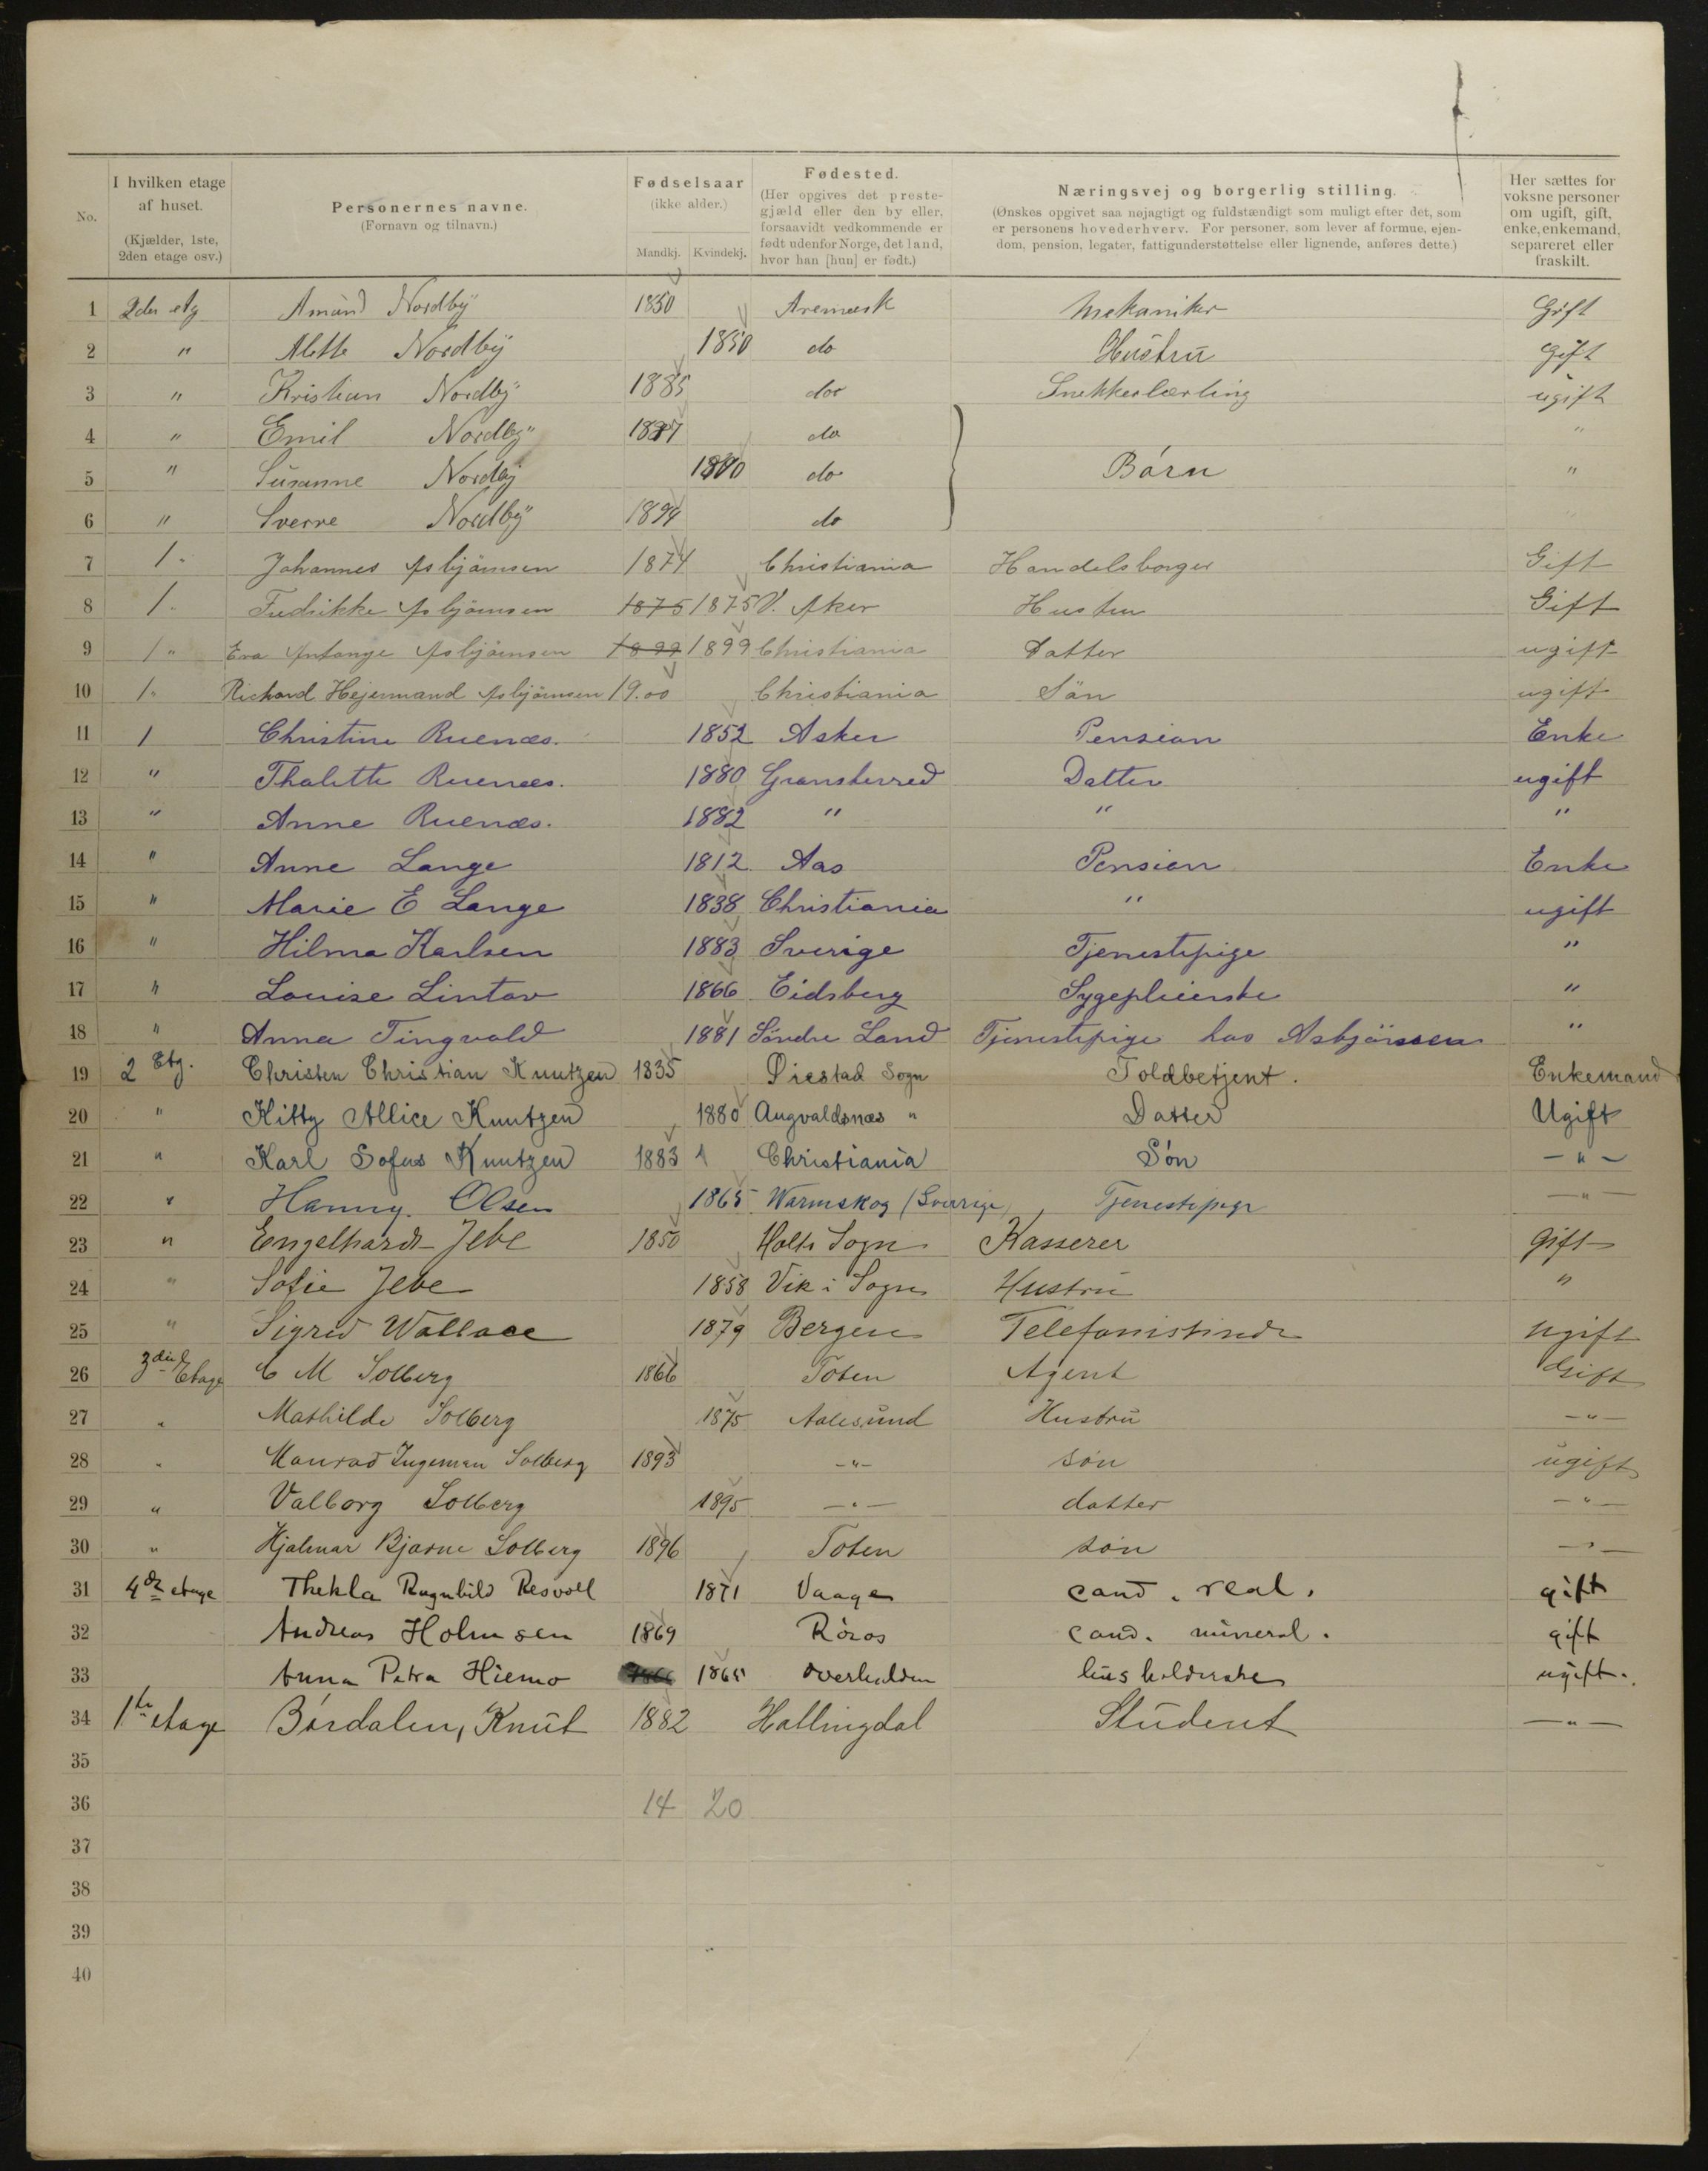 No.
I hvilken etage af huset. (Kjælder, 1ste, 2den etage osv.)
Personernes navne. (Fornavn og tilnavn.)
Fødselsaar (ikke alder.) Mandkj. Kvindekj.
Fødested. (Her opgives det prestegjæld eller den by eller, forsaavidt vedkommende er født udenfor Norge, det land, hvor han [hun] er født.)
Næringsvej og borgerlig stilling. (Ønskes opgivet saa nøjagtigt og fuldstændigt som muligt efter det, som er personens hovederhverv. For personer, som lever af formue, ejendom, pension, legater, fattigunderstøttelse eller lignende, anføres dette.)
Her sættes for voksne personer om ugift, gift, enke, enkemand, separeret eller fraskilt.
1 2den etg Amünd Nordbÿ 1850 Aremark Mekaniker Gift
2 " Alette Nordbÿ 1850 do Hüstrü Gift
3 " Kristian Nordbÿ 1885 do Snekkerlærling ügift
4 " Emil Nordbÿ 1887 do "
5 " Süsanne Nordbÿ do Børn "
6 " Sverre Nordbÿ 1894 do
7 1 " Johannes Asbjørnsen 1874 Christiania Handelsborger Gift
8 1 " Fredrikke Asbjørnsen 1875 1875 V. Aker Hustru Gift
9 1 " Eva Asbjørnsen 1899 1899 Christiania Datter ugift
10 1 " Richard Hejermand Asbjørnsen 19.00 Christiania Søn ugift
11 1 Christine Ruenæs. 1852 Asker Pension Enke
12 " Thalette Ruenæs. 1880 Gransherred Datter ugift
13 " Anne Ruenæs. 1882 " " "
14 " Anne Lange 1812 Aas Pension Enke
15 " Marie E Lange 1838 Christiania " ugift
16 " Hilma Karlsen 1883 Sverige Tjenestepige "
17 " Louise Lintov 1866 Eidsberg Sygepleierske "
18 " Anna Tingvold 1881 Søndre Land Tjenestepige hos Asbjørnsen "
19 2 Etg. Christen Christian Knutzen 1835 Øiestad Sogn Toldbetjent. Enkemand
20 " Kitty Allice Knutzen 1880 Augvaldsnæs " Datter Ugift
21 " Karl Sofus Knutzen 1883 Christiania Søn - " -
22 " Hanny. Olsen 1865 Warmskog (Sverige) Tjenestepige - " -
23 " Engelhardt Jebe 1850 Holts Sogn Kasserer Gift
24 " Sofie Jebe 1858 Vik i Sogn Hustrü "
25 " Sigrid Wallace 1879 Bergen Telefonistinde ugift
26 3die Etage C M Solberg 1866 Toten Agent Gift
27 " Mathilde Solberg 1875 Aalesünd Hustrü - " -
28 " Konrad Ingeman Solberg 1893 - " - søn ügift
29 " Valborg Solberg 1895 - " - datter - " -
30 " Hjalmar Bjarne Solberg 1896 Toten søn - " -
31 4de etage Thekla Ragnhild Resvoll 1871 Vaage cand. real. gift
32 Andreas Holmsen 1869 Røros cand. mineral. gift
33 Anna Petra Hiemo 1865 Overhalden hüsholderske ugift.
34 1ste etage Bordalen, Knüt 1882 Hallingdal Stüdent - " -
35
36 14 20
37
38
39
40